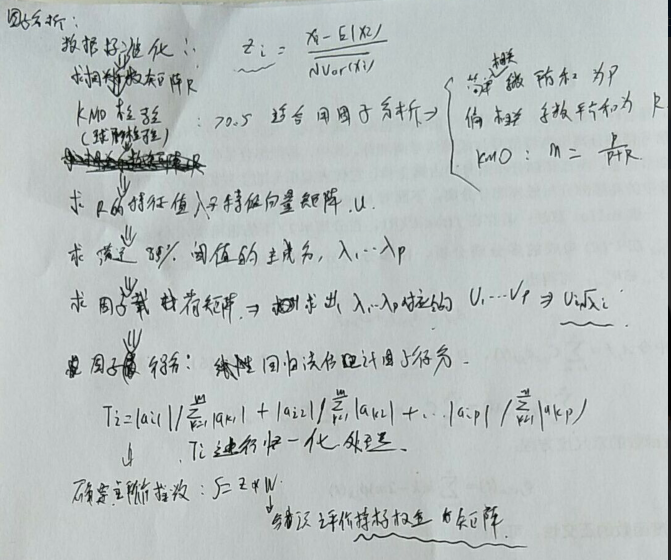 因子分析:
数据标准化: Zi = Xi - E(Xi) / √Var(Xi)
求相关系数矩阵R
KMO检验 : >0.5 适合用因子分析 ⇒
(球形检验)
简单相关 平方和 为P
偏相关 系数平方和为 R
KMO : m = P / P+R
求 R的特征值 λ 特征向量矩阵 U.
求 满足 85% 阈值的主成分, λ1…λp
求 因子载荷矩阵 ⇒ 求出 λ1…λp对应的 U1…Up ⇒ Ui√λi
因子得分: 线性回归法估计因子得分.
Ti=|ai1|/∑|ak1| + |ai2|/∑|ak2| + … |aip|/∑|akp|
Ti 进行归一化处理.
确定主评价指数: S = Z * W
评价指标权重 矩阵.